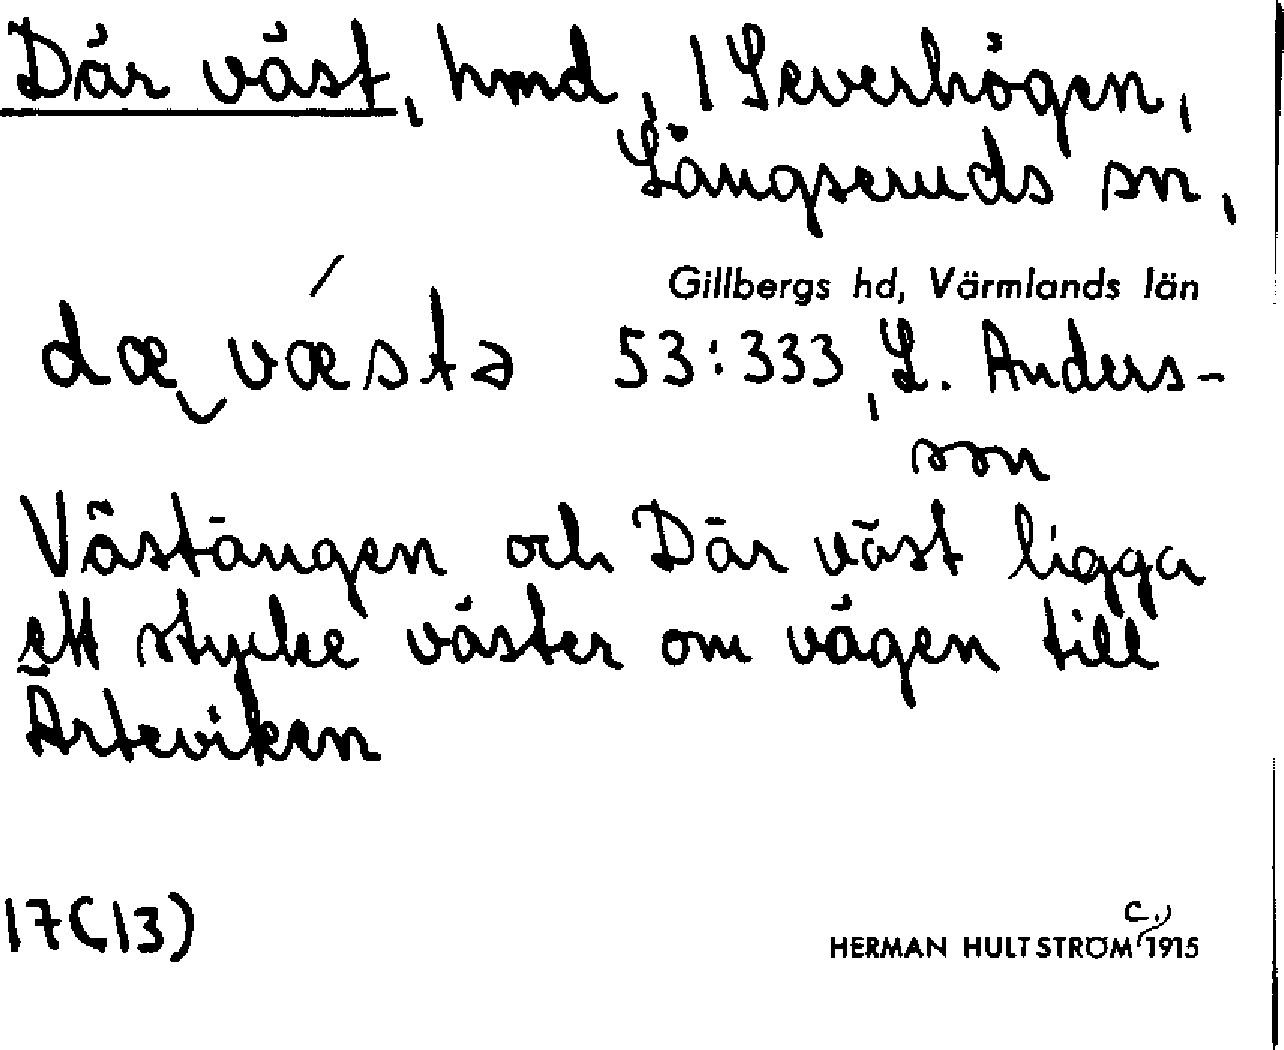 Där väst, hmd, 1 Severhögen,
Långseruds sn,
Gillbergs hd, Värmlands län
dæ‿vǽstə 53:333, L. Anders-
son
Västängen och Där väst ligga
ett stycke väster om vägen till
Ärteviken
17(13)
HERMAN HULTSTRÖM c. 1915